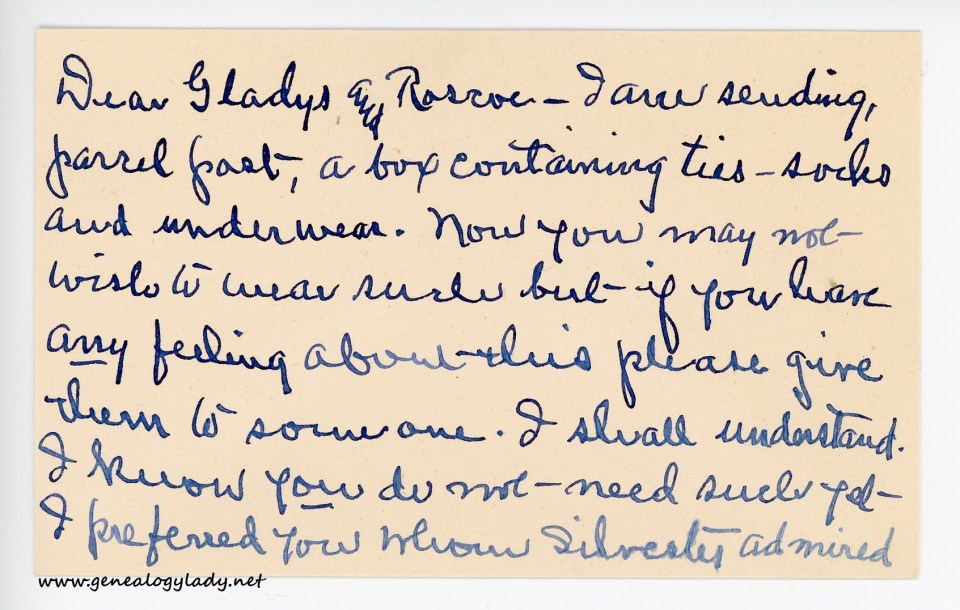 Dear Gladys and Roscoe — I am sending,
parcel post, a box containing ties — socks
and underwear. Now you may not
wish to wear such but if you have
any feeling about this please give
them to some one. I shall understand.
I know you do not — need such yet —
I preferred you whom Silvester admired
www.genealogylady.net